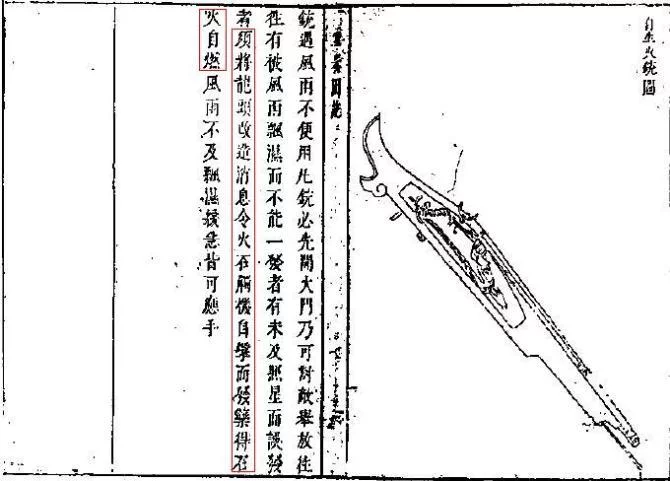 自生火銃圖
軍器圖說
銃遇風雨不便用凡銃必先開火門乃可對敵舉放往
往有被風雨飄濕而不能一發者有未及照星而誤發
者須將龍頭改造消息令火石觸機自擊而發藥得石
火自燃風雨不及飄濕緩急皆可應手